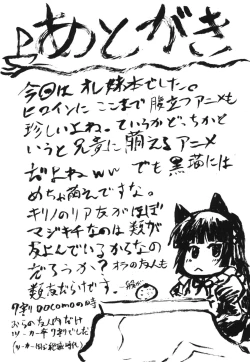 あとがき
今回は オレ妹本でした。
ヒロインに ここまで 腹立つアニメも
珍しいよね。ていうかどっちかと
いうと兄貴に萌えるアニメ
だよねww でも 黒猫には
めちゃ萌えですな。
キリノのリア友がほぼ
マジキチなのは 類が
友よんでいるからなの
だろうか？ オラの友人も
数友だらけです。
9割 docomoの時
おらの友人内だけ
ツーカー率 9割でしたし